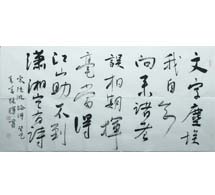 文字塵埃
我自知
向来諸老
誤相期揮
毫當得
江山助不到
瀟湘豈有詩